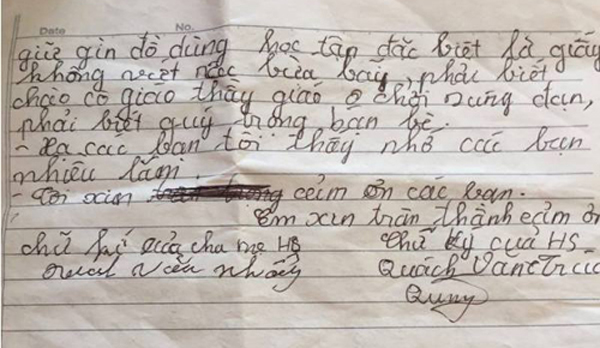 Date No.
giữ gìn đồ dùng học tập đặc biệt là giấy
không viết bừa bãy, phải biết
chào cô giáo thầy giáo chơi đạn,
phải biết quý trọng bạn bè.
- Xa các bạn tôi thấy nhớ các bạn
nhiều lắm.
- Tôi xin cảm ơn các bạn.
Em xin trân thành cảm ơ
chữ kí của cha mẹ HS Chữ ký của HS
Quách Văn